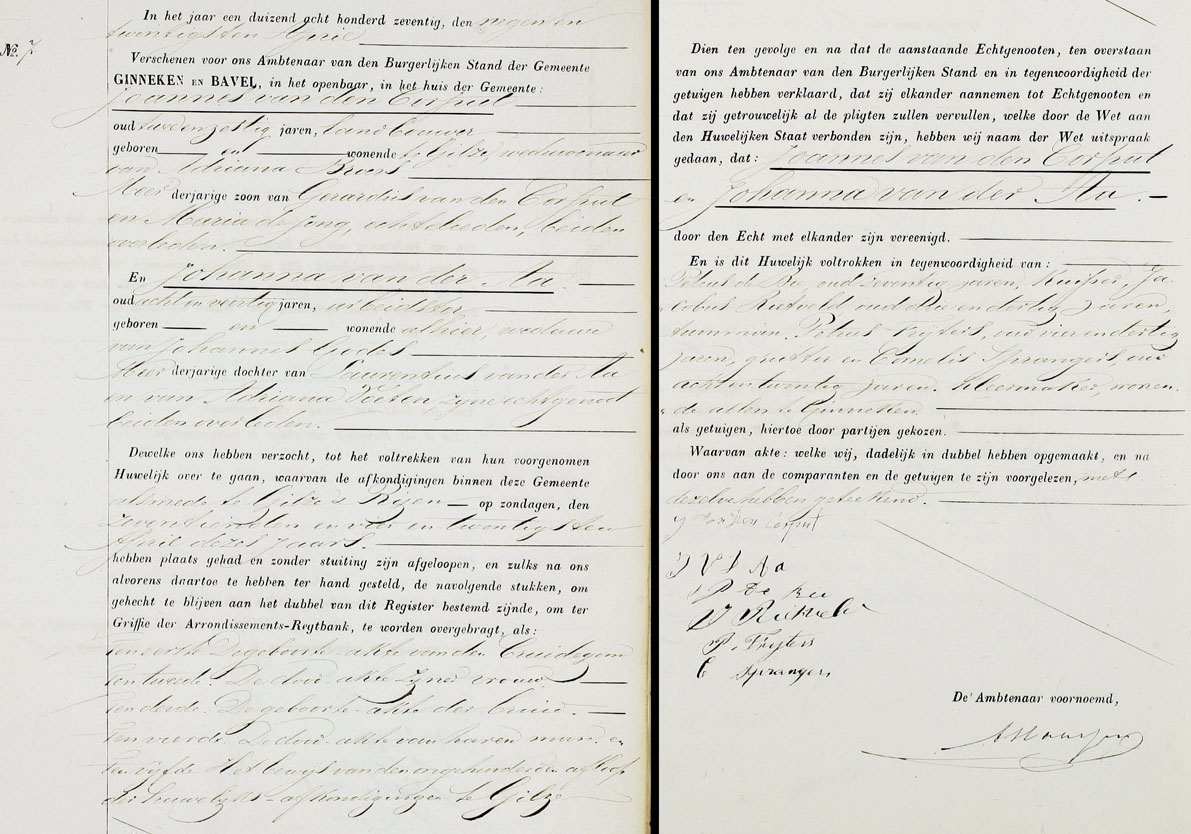 No. 7
In het jaar een duizend acht honderd zeventig, den negen en
twintigsten April
Verschenen voor ons Ambtenaar van den Burgerlijken Stand der Gemeente
GINNEKEN EN BAVEL, in het openbaar, in het huis der Gemeente:
Joannes van den Corput
oud twee en zestig jaren, landbouwer
geboren en wonende te Gilze, weduwenaar
van Adriana
Meer derjarige zoon van Gerardus van den Corput
en Maria de Jong, echtelieden, beiden
overleden.
En Johanna van der Aa.
oud acht en veertig jaren, arbeidster
geboren en wonende alhier, weduwe
van Johannes
Meer derjarige dochter van Laurentius van der Aa
en van Adriana zijne echtgenoot
beiden overleden.
Dewelke ons hebben verzocht, tot het voltrekken van hun voorgenomen
Huwelijk over te gaan, waarvan de afkondigingen binnen deze Gemeente
alsmede te Gilze & Rijen op zondagen, den
zeventienden en vier en twintigsten
April dezes jaars.
hebben plaats gehad en zonder stuiting zijn afgeloopen, en zulks na ons
alvorens daartoe te hebben ter hand gesteld, de navolgende stukken, om
gehecht te blijven aan het dubbel van dit Register bestemd zijnde, om ter
Griffie der Arrondissements-Regtbank, te worden overgebragt, als:
ten eerste De geboorte akte van den Bruidegom
ten tweede. De dood-akte zijner vrouw
ten derde. De geboorte-akte der bruid.
ten vierde De dood-akte van haren man. en
ten vijfde Het bewijs van den ongehinderden afloop
der huwelijks-afkondigingen te Gilze
Dien ten gevolge en na dat de aanstaande Echtgenooten, ten overstaan
van ons Ambtenaar van den Burgerlijken Stand en in tegenwoordigheid der
getuigen hebben verklaard, dat zij elkander aannemen tot Echtgenooten en
dat zij getrouwelijk al de pligten zullen vervullen, welke door de Wet aan
den Huwelijken Staat verbonden zijn, hebben wij naam der Wet uitspraak
gedaan, dat: Joannes van den Corput
en Johanna van der Aa.
door den Echt met elkander zijn vereenigd.
En is dit Huwelijk voltrokken in tegenwoordigheid van:
Petrus de Bie, oud zeventig jaren, kuiper, Ja-
cobus oud drie en dertig jaren,
tuinman, Petrus Frijters, oud vier en dertig
jaren, en Cornelis Sprangers, oud
acht en twintig jaren. kleermaker, wonen-
de allen te Ginneken
als getuigen, hiertoe door partijen gekozen.
Waarvan akte: welke wij, dadelijk in dubbel hebben opgemaakt, en na
door ons aan de comparanten en de getuigen te zijn voorgelezen, met
dezelve hebben geteekend.
J van den Corput
J V D Aa
P De Bie
P. Frijters
C Sprangers
De Ambtenaar voornoemd,